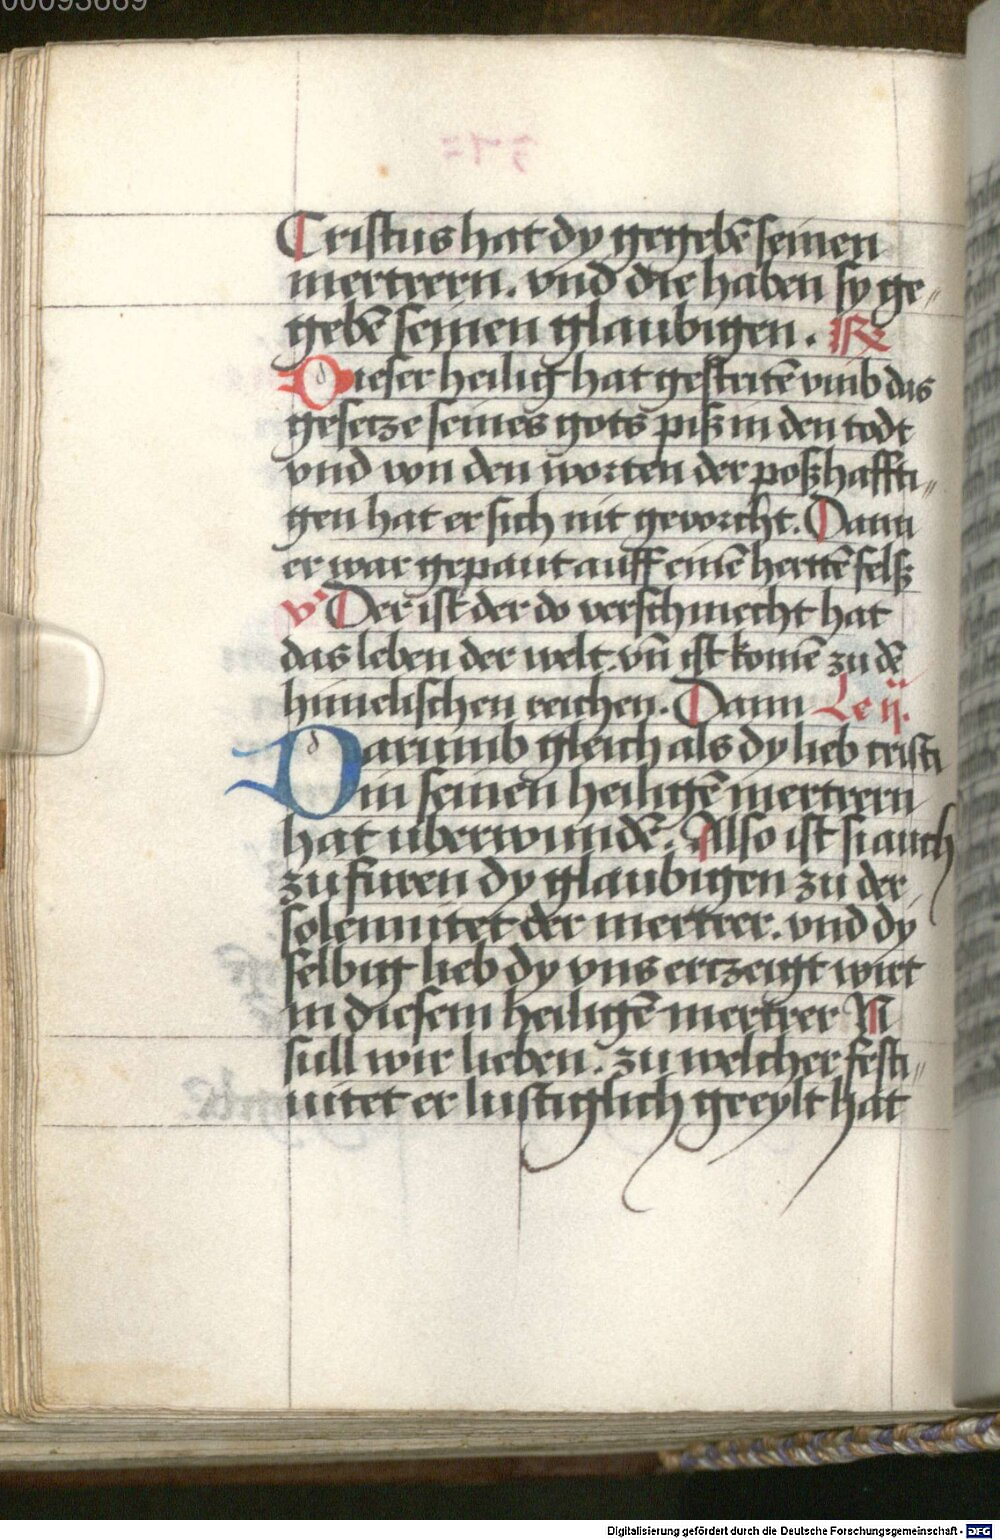 00093669
Cristus hat dy gegebē seinen
mertrern. vnd die haben sy ge„
gebē seinen glaubigen. R
Dieser heilig hat gestritē vmb das
gesetze seines gots piß in den todt
vnd von den worten der poßhaffti„
gen hat er sich nit gevorcht. Dann
er war gepaut auff einē hertē felß
v Der ist der do verschmecht hat
das leben der welt. vn̄ ist komē zu dē
himelischen reichen. Dann Le ij.
Darumb gleich als dy lieb cristi
in seinen heiligē mertrern
hat uberwundē. Also ist si auch
zufuren dy glaubigen zu der
solennitet der mertrer. vnd dy
selbig lieb dy vns erczeigt wirt
in diesem heiligē mertrer N
sull wir lieben. zu welcher festi„
uitet er lustiglich geeylt hat
Digitalisierung gefördert durch die Deutsche Forschungsgemeinschaft - DFG